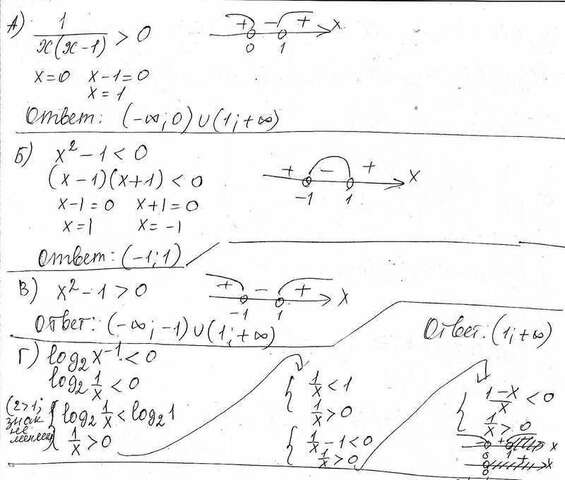 А) 1/(x(x-1)) > 0
+ - + x
0 1
x=0 x-1=0
x=1
Ответ: (-∞; 0) ∪ (1; +∞)
Б) x² - 1 < 0
(x-1)(x+1) < 0
x-1=0 x+1=0
x=1 x=-1
+ - + x
-1 1
Ответ: (-1; 1)
В) x² - 1 > 0
+ - + x
-1 1
Ответ: (-∞; -1) ∪ (1; +∞)
Г) log₂ x⁻¹ < 0
log₂ 1/x < 0
(2>1, знак не
{ log₂ 1/x < log₂ 1
1/x > 0
{ 1/x < 1
1/x > 0
{ 1/x - 1 < 0
1/x > 0
{ (1-x)/x < 0
1/x > 0
- + - x
0 1
+ x
0
Ответ. (1; +∞)